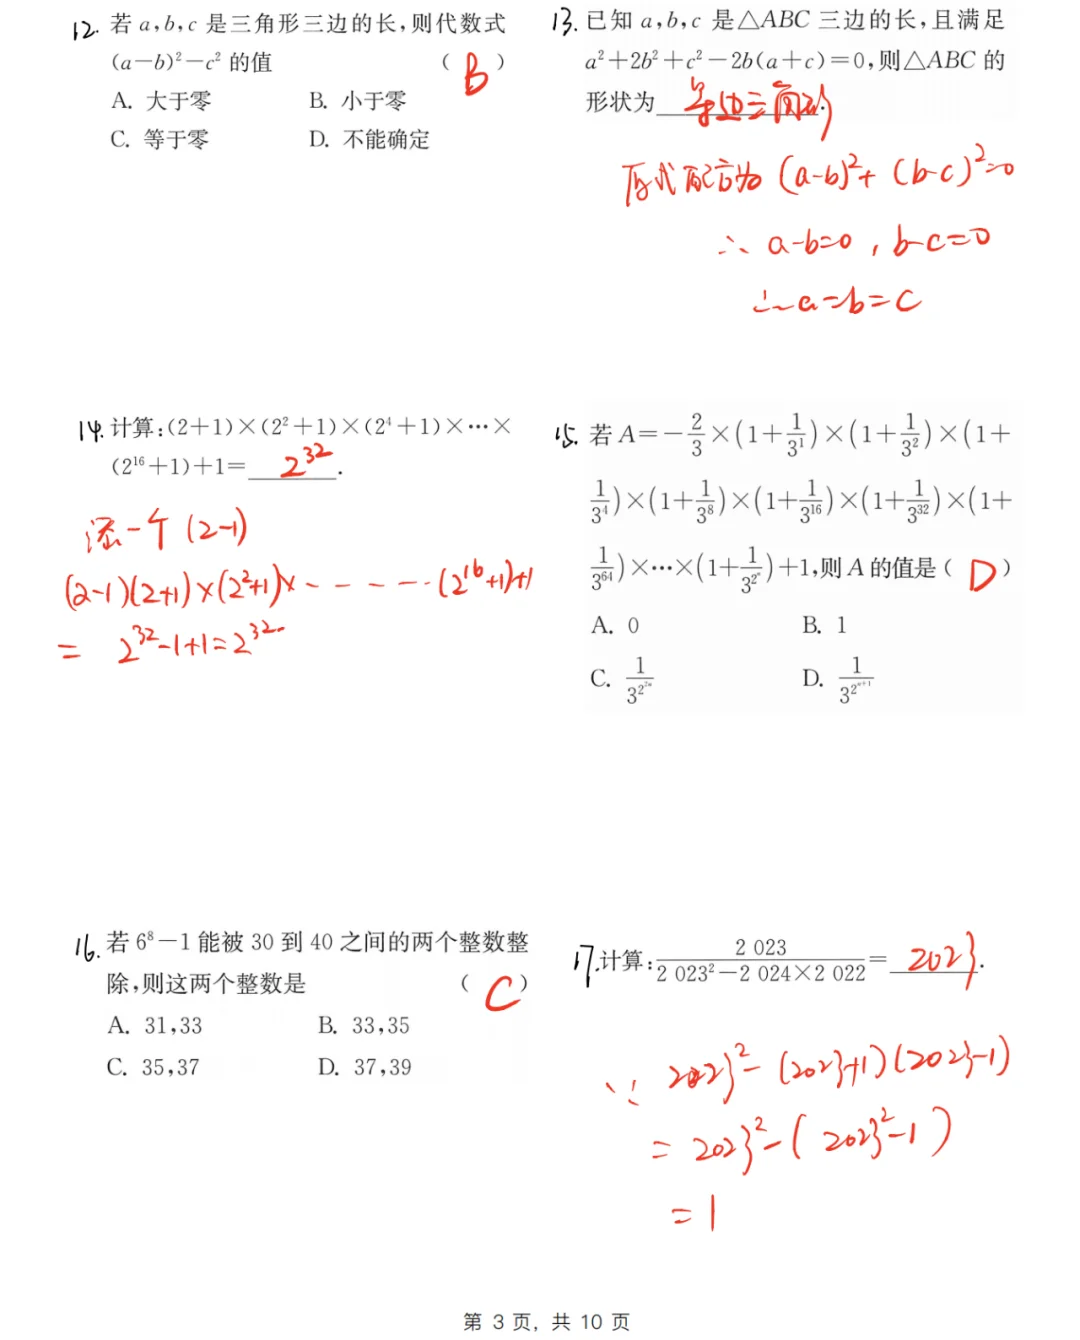 12. 若 a,b,c 是三角形三边的长,则代数式
(a-b)²-c² 的值 ( B )
A. 大于零 B. 小于零
C. 等于零 D. 不能确定
13. 已知 a,b,c 是△ABC 三边的长,且满足
a²+2b²+c²-2b(a+c)=0,则△ABC 的
形状为 等边三角形.
原式配方为 (a-b)²+(b-c)²=0
∴ a-b=0, b-c=0
∴ a=b=c
14. 计算:(2+1)×(2²+1)×(2⁴+1)×…×
(2¹⁶+1)+1= 2³² .
添一个 (2-1)
(2-1)(2+1)×(2²+1)×------(2¹⁶+1)+1
= 2³²-1+1=2³²
15. 若 A=-2/3×(1+1/3¹)×(1+1/3²)×(1+
1/3⁴)×(1+1/3⁸)×(1+1/3¹⁶)×(1+1/3³²)×(1+
1/3⁶⁴)×…×(1+1/3^(2^n))+1,则 A 的值是( D )
A. 0 B. 1
C. 1/3^(2^(2n)) D. 1/3^(2^(n+1))
16. 若 6⁸-1 能被 30 到 40 之间的两个整数整
除,则这两个整数是 ( C )
A. 31,33 B. 33,35
C. 35,37 D. 37,39
17. 计算: 2 023/(2 023²-2 024×2 022)= 2023 .
∵ 2023²-(2023+1)(2023-1)
= 2023²-(2023²-1)
= 1
第 3 页, 共 10 页